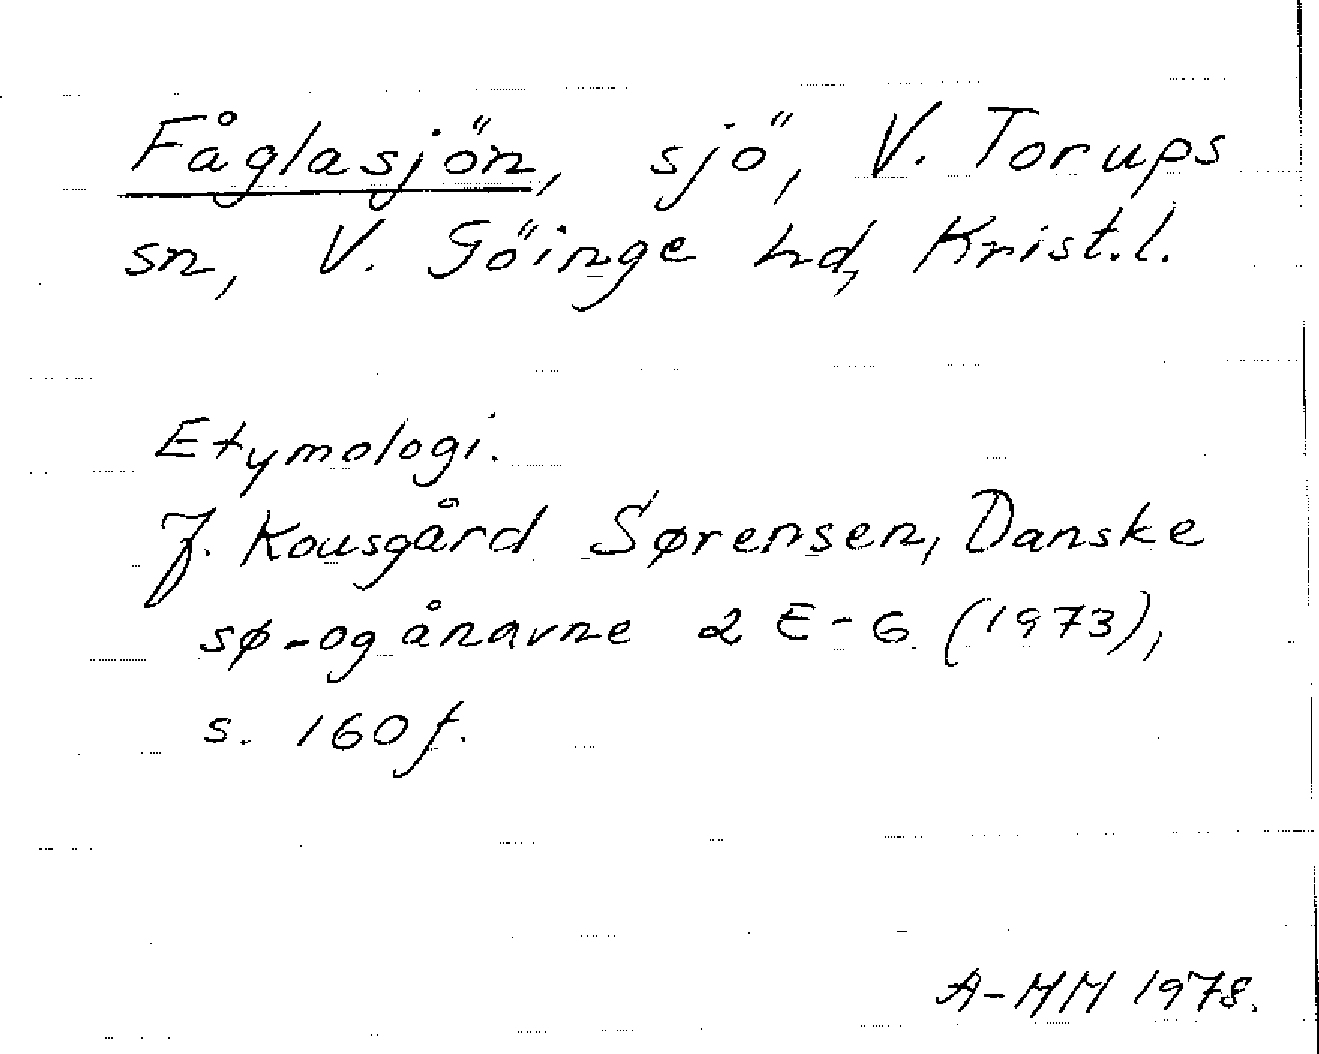 Fåglasjön, sjö, V. Torups
sn, V. Göinge hd, Krist.l.
Etymologi.
J. Kousgård Sørensen, Danske
sø- og ånavne 2 E-G (1973),
s. 160 f.
A-MM 1978.